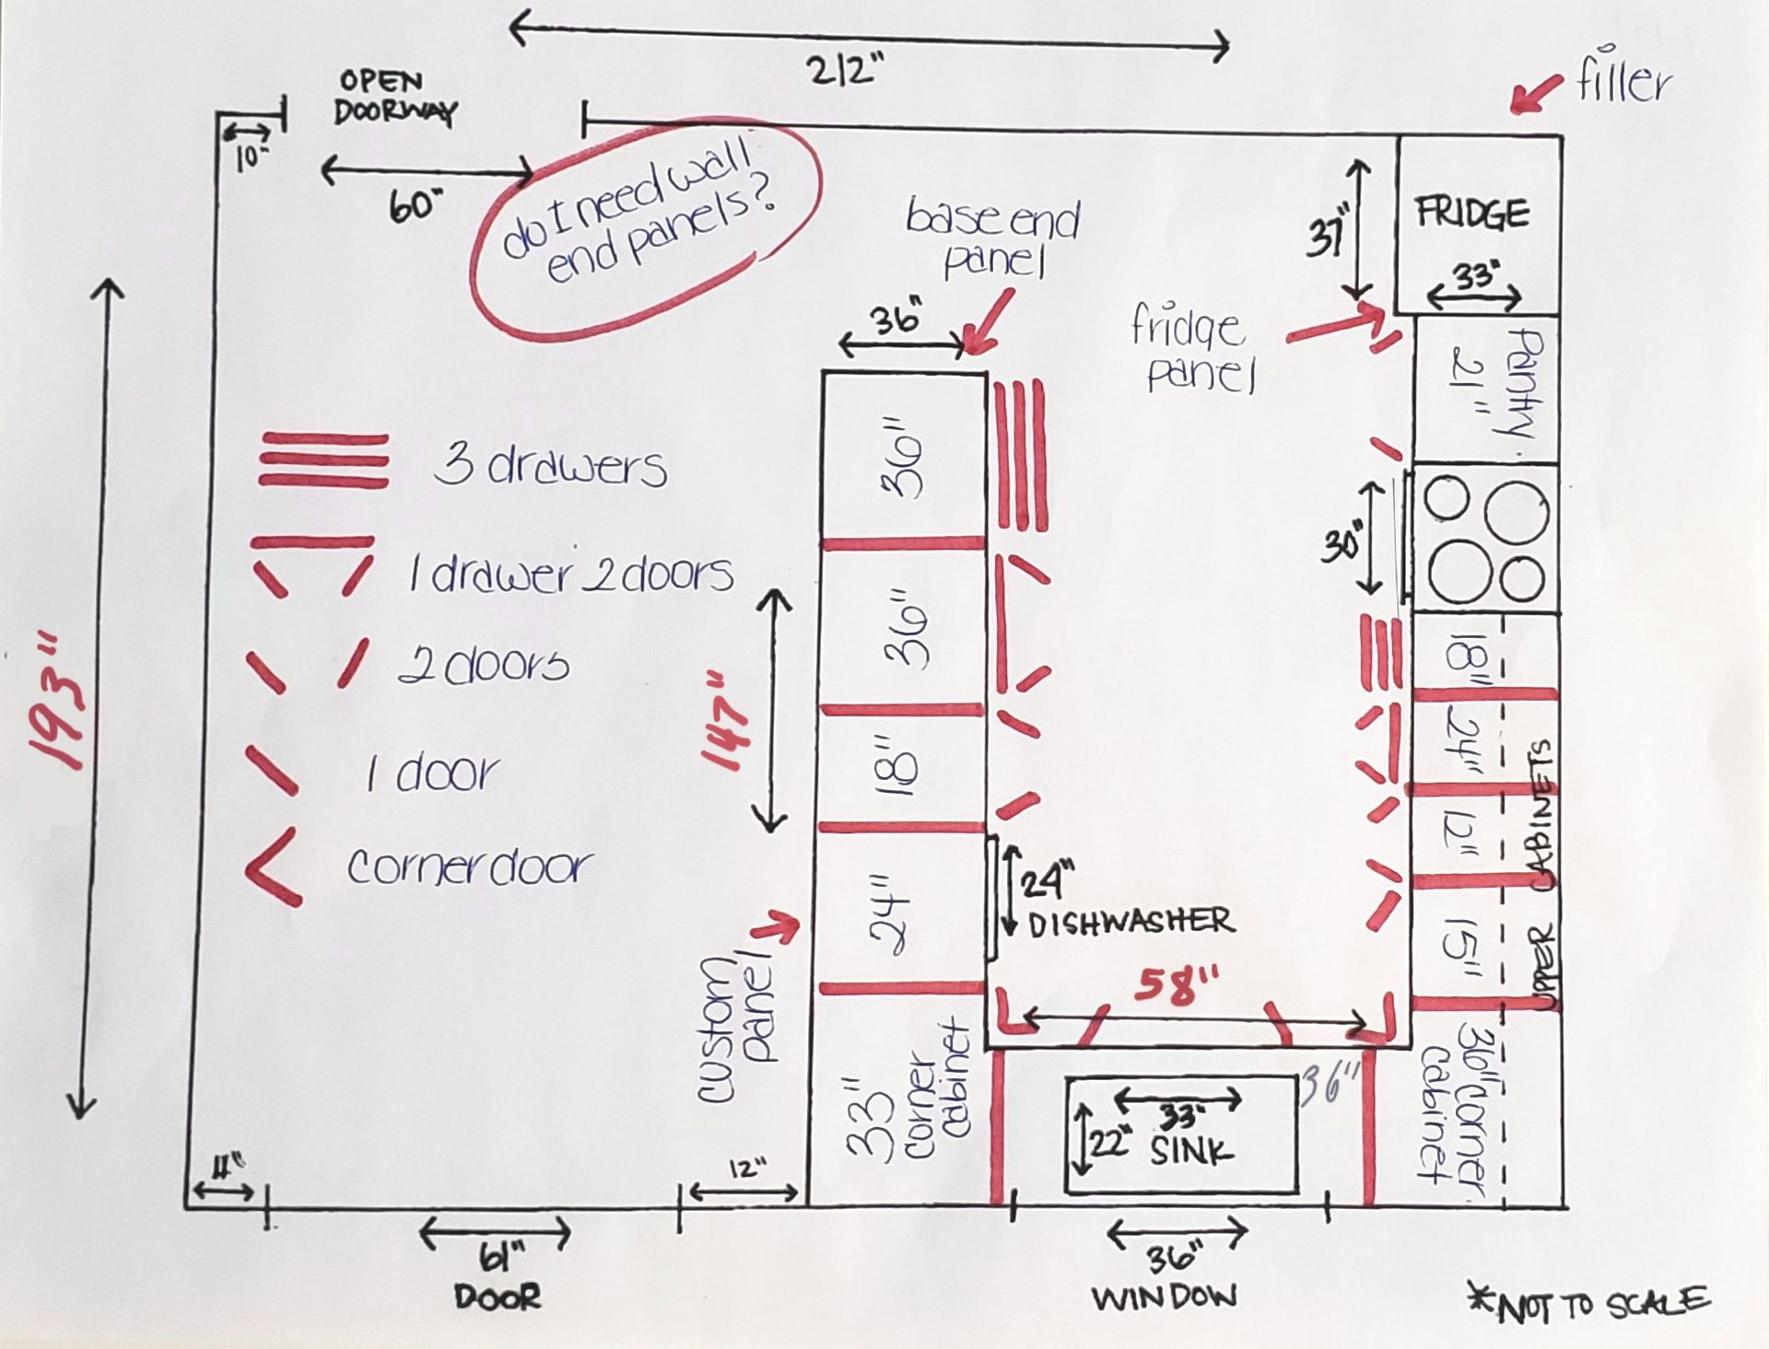 212"
filler
OPEN
DOORWAY
10"
60"
do I need wall
end panels?
base end
panel
36"
37"
FRIDGE
33"
fridge
panel
Pantry
21"
193"
3 drawers
1 drawer 2 doors
2 doors
1 door
corner door
147"
36"
36"
18"
24"
33"
corner
cabinet
custom
panel
24"
DISHWASHER
30"
18"
24"
12"
15"
36" corner
cabinet
UPPER CABINETS
58"
36"
33"
22"
SINK
11"
12"
61"
DOOR
36"
WINDOW
*NOT TO SCALE